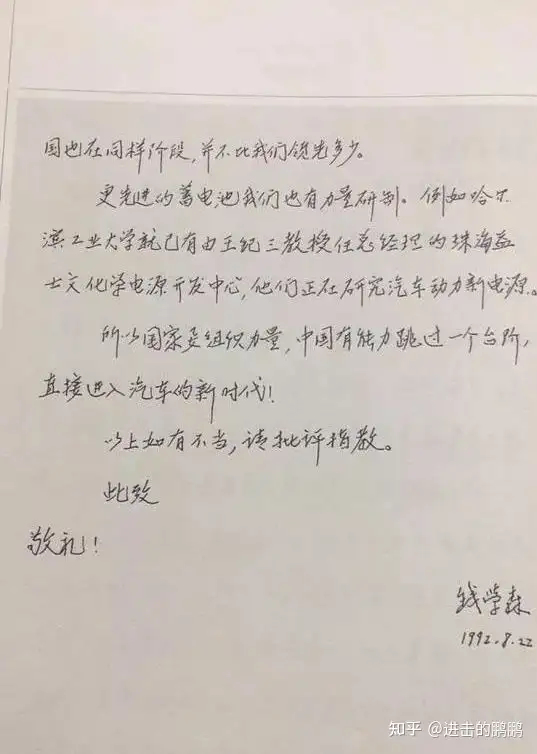 国也在同样阶段,并不比我们领先多少。
更先进的蓄电池我们也有力量研制。例如哈尔
滨工业大学就已有由王纪三教授任总经理的珠海益
士文化学电源开发中心,他们正在研究汽车动力新电源。
所以国家要组织力量,中国有能力跳过一个台阶,
直接进入汽车的新时代!
以上如有不当,请批评指教。
此致
敬礼!
钱学森
1992.8.22
知乎 @进击的鹏鹏